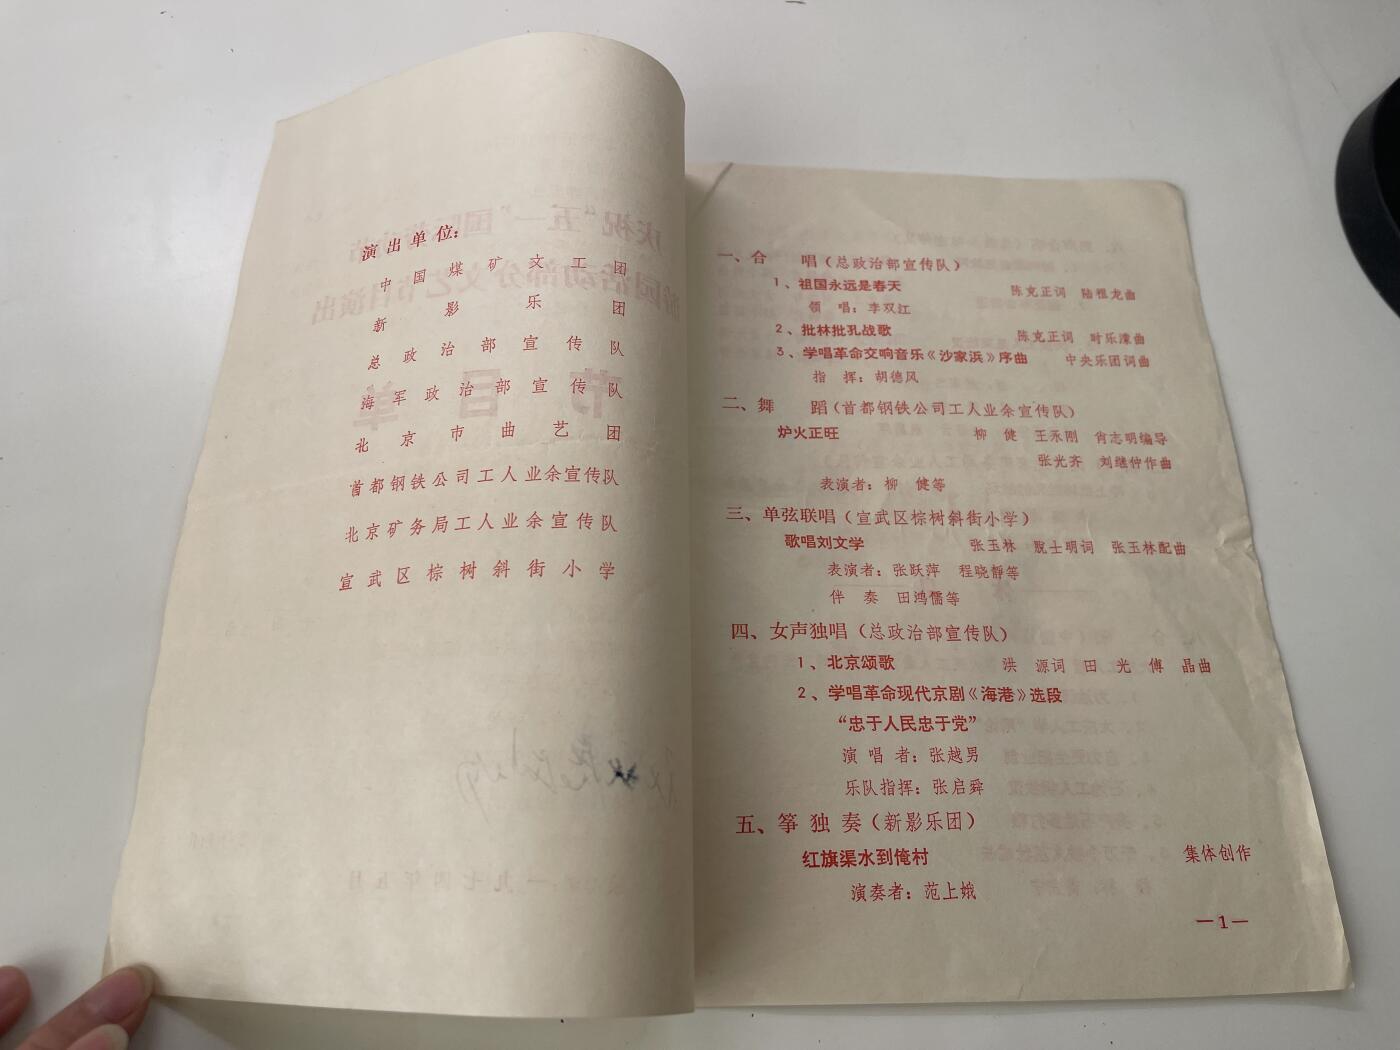 演出单位:
中国煤矿文工团
新影乐团
总政治部宣传队
海军政治部宣传队
北京市曲艺团
首都钢铁公司工人业余宣传队
北京矿务局工人业余宣传队
宣武区棕树斜街小学
一、合 唱（总政治部宣传队）
1、祖国永远是春天 陈克正词 陆祖龙曲
领 唱：李双江
2、批林批孔战歌 陈克正词 时乐濛曲
3、学唱革命交响音乐《沙家浜》序曲 中央乐团词曲
指 挥：胡德风
二、舞 蹈（首都钢铁公司工人业余宣传队）
炉火正旺 柳 健 王永刚 肖志明编导
张光齐 刘继仲作曲
表演者：柳 健等
三、单弦联唱（宣武区棕树斜街小学）
歌唱刘文学 张玉林 脱士明词 张玉林配曲
表演者：张跃萍 程晓静等
伴 奏 田鸿儒等
四、女声独唱（总政治部宣传队）
1、北京颂歌 洪 源词 田 光 傅 晶曲
2、学唱革命现代京剧《海港》选段
“忠于人民忠于党”
演 唱 者：张越男
乐队指挥：张启舜
五、筝 独 奏（新影乐团）
红旗渠水到俺村 集体创作
演奏者：范上娥
—1—